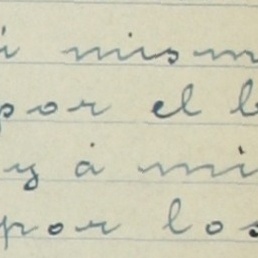 i mism
por el b
y á mi
por los